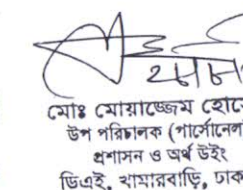 মোঃ মোয়াজ্জেম হোসে
উপ পরিচালক (পার্সোনেল
প্রশাসন ও অর্থ উইং
ডিএই, খামারবাড়ি, ঢাক